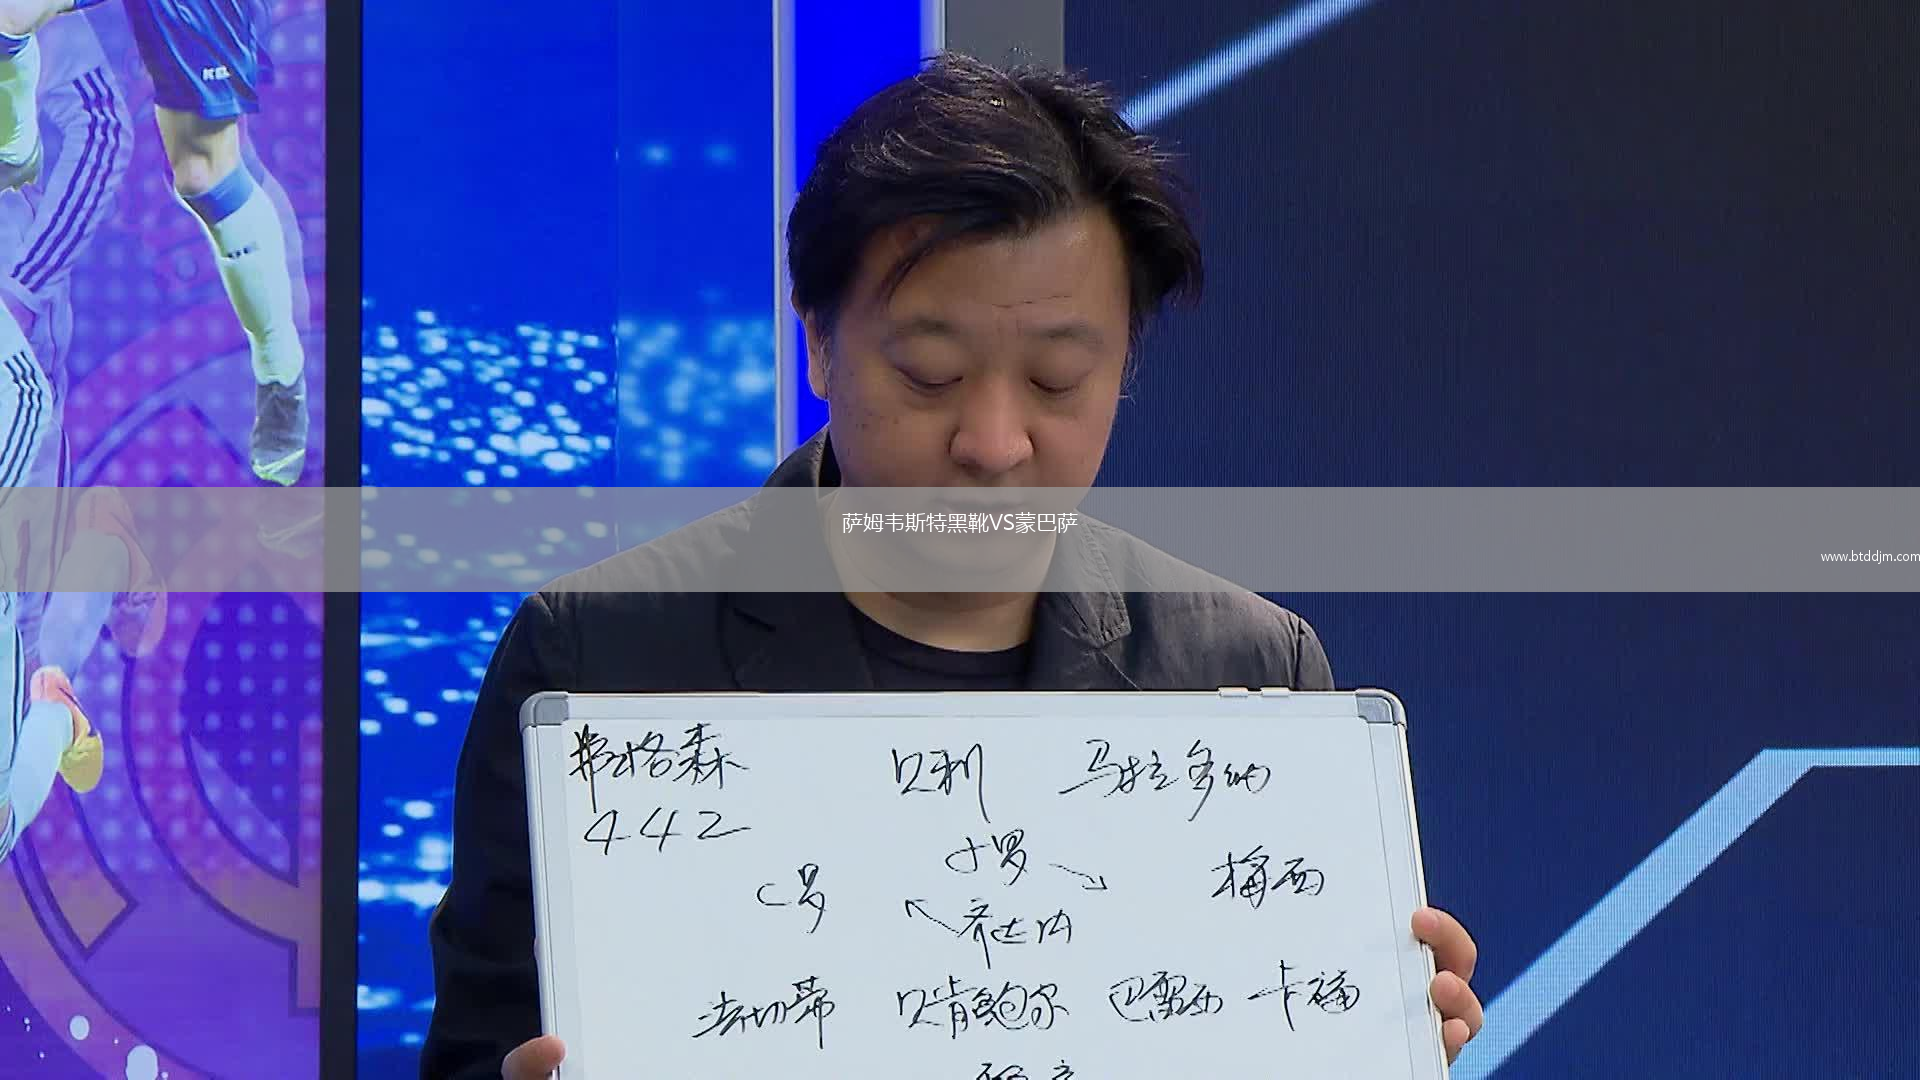 萨姆韦斯特黑靴VS蒙巴萨
www.btddjm.com
弗格森 贝利 马拉多纳
442
小罗
C罗 梅西
齐达内
法切蒂 贝肯鲍尔 巴雷西 卡福